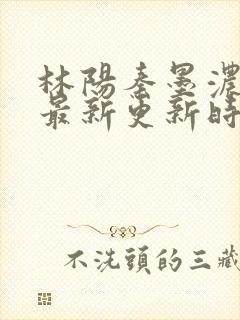 林陽秦墨濃
最新更新時
不洗頭的三藏